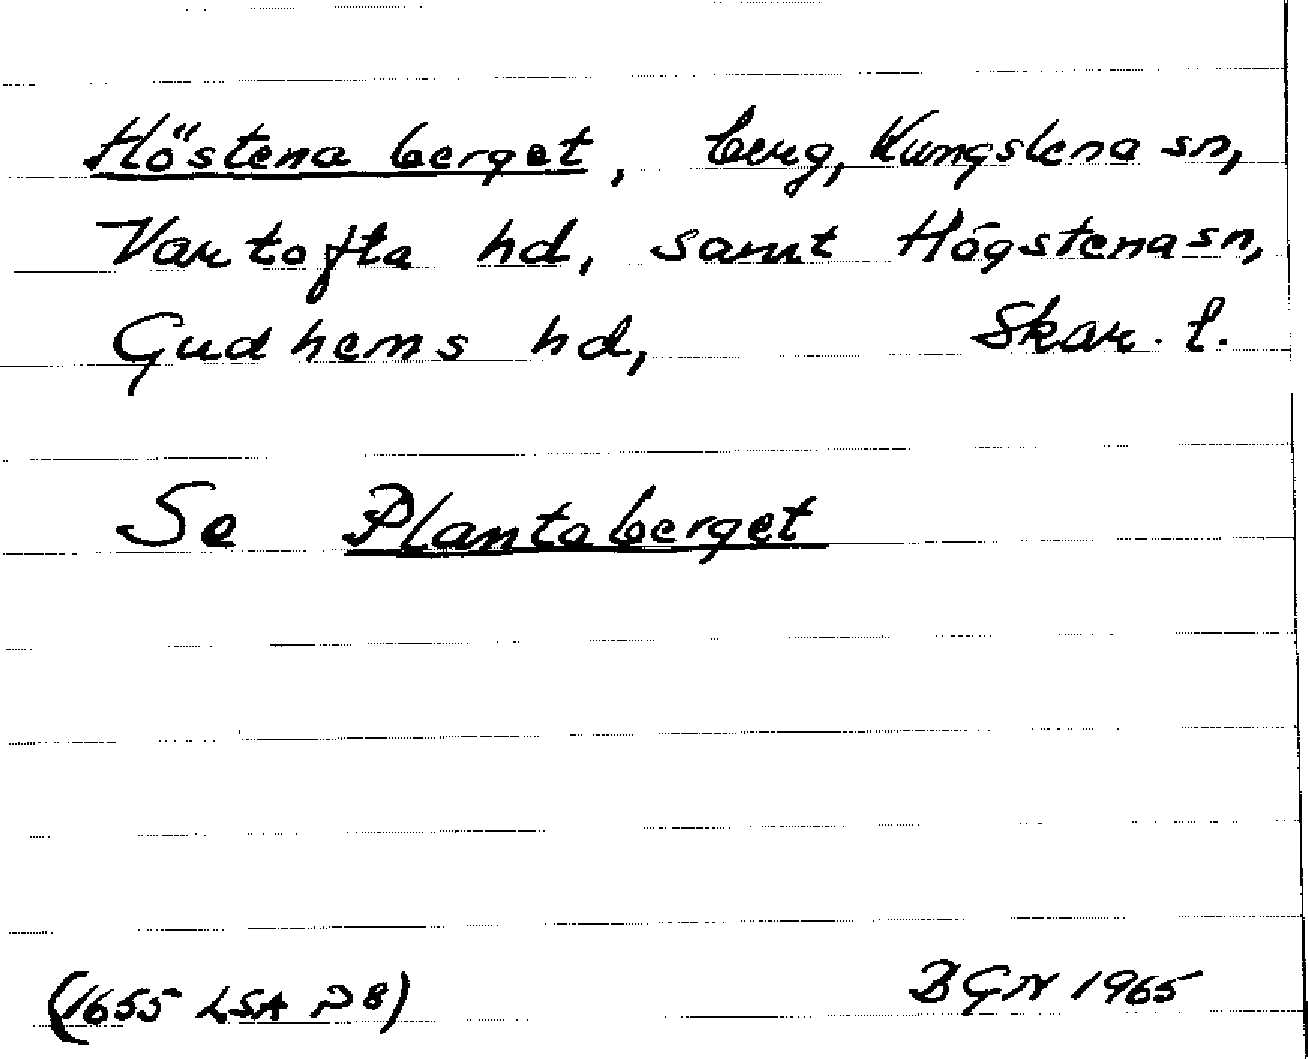 Höstena berget, berg, Kungslena sn,
Vartofta hd, samt Högstena sn,
Gudhems hd, Skar. l.
Se Plantaberget
(1655 LSA P8)
BGN 1965